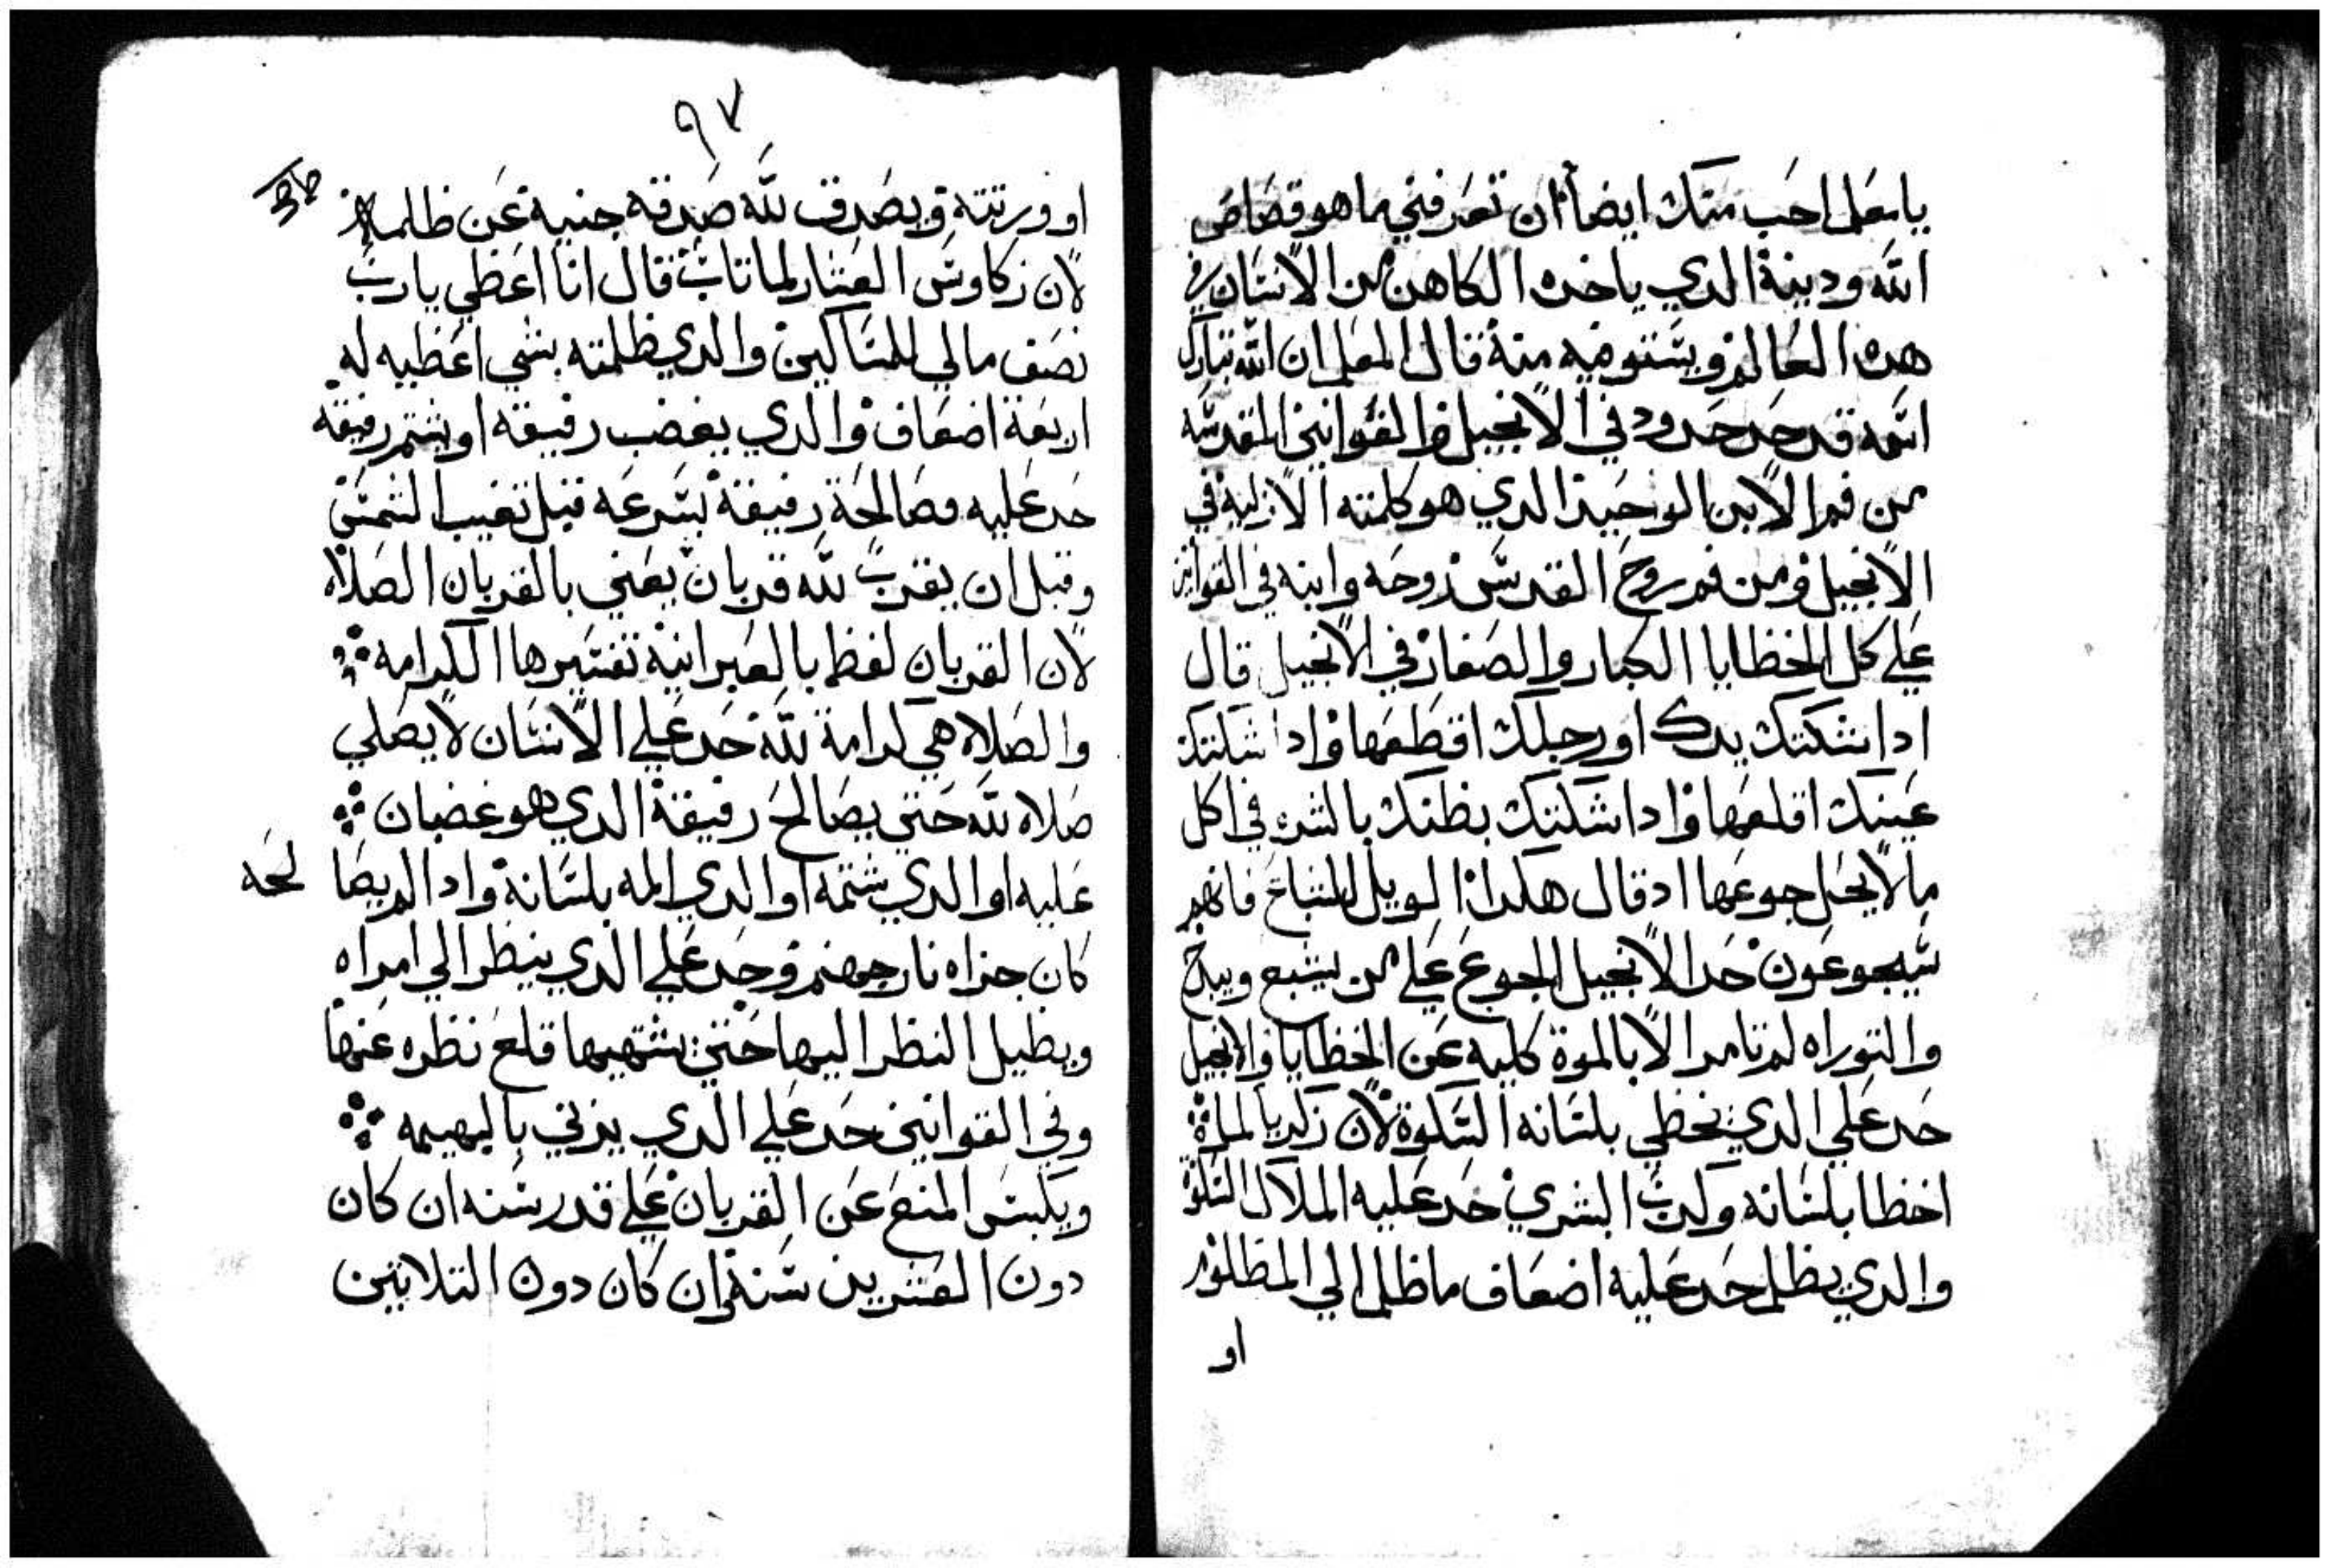 يا معلم احب منك ايضا ان تعرفني ما هو قصاص
الله ودينة الدي ياخده الكاهن من الانسان في
هده العالم ويستوفيه منة قال المعلم ان الله تبارك
اسمه قد حد حدود في الانجيل والقوانين المقدسه
من فم الابن الوحيد الدي هو كلمته الازليه في
الانجيل ومن فم روح القدس روحه وابنه في القوانين
علي كل الخطايا الكبار والصغار في الانجيل قال
ادا شككتك يدك او رجلك اقطعها وادا شككتك
عينك اقلعها وادا شككتك بطنك بالشره في اكل
ما لا يحل جوعها اد قال هكدا الويل للشباع فانهم
سيجوعون حد الانجيل الجوع علي من يشبع ويبدخ
والتوراه لم تامر الا بالموة كليه عن الخطايا والانجيل
حد علي الدي يخطي بلسانه السكوة لان زكريا لما
اخطا بلسانه وكدب البشري حد عليه الملاك السكوة
والدي يظلم حد عليه اضعاف ما ظلم الي المظلوم
او
٩٧
او ورتته ويصدق لله صدقه جنيه عن ظلمه
لان زكاوس العشار لما تاب قال انا اعطي يارب
نصف مالي للمساكين والدي ظلمته بشي اعطيه له
اربعة اضعاف والدي يغضب رفيقه او يشتم رفيقه
حد عليه مصالحة رفيقة بسرعه قبل تغيب الشمس
وقبل ان يقرب لله قربان يعني بالقربان الصلاه
لان القربان لفظه بالعبرانية تفسيرها الكرامه
والصلاه هي كرامة لله حد علي الانسان لا يصلي
صلاه لله حتي يصالح رفيقة الدي هو غضبان
عليه او الدي شتمه او الدي المه بلسانة وادا لم يصا لحه
كان جزاه نار جهنم وحد علي الدي ينظر الي امراه
ويطيل النظر اليها حتي يشتهيها قلع نظره عنها
وفي القوانين حد علي الدي يزني بالبهيمه
ويلبس المنع عن القربان علي قدر سنه ان كان
دون العشرين سنة وان كان دون التلاتين